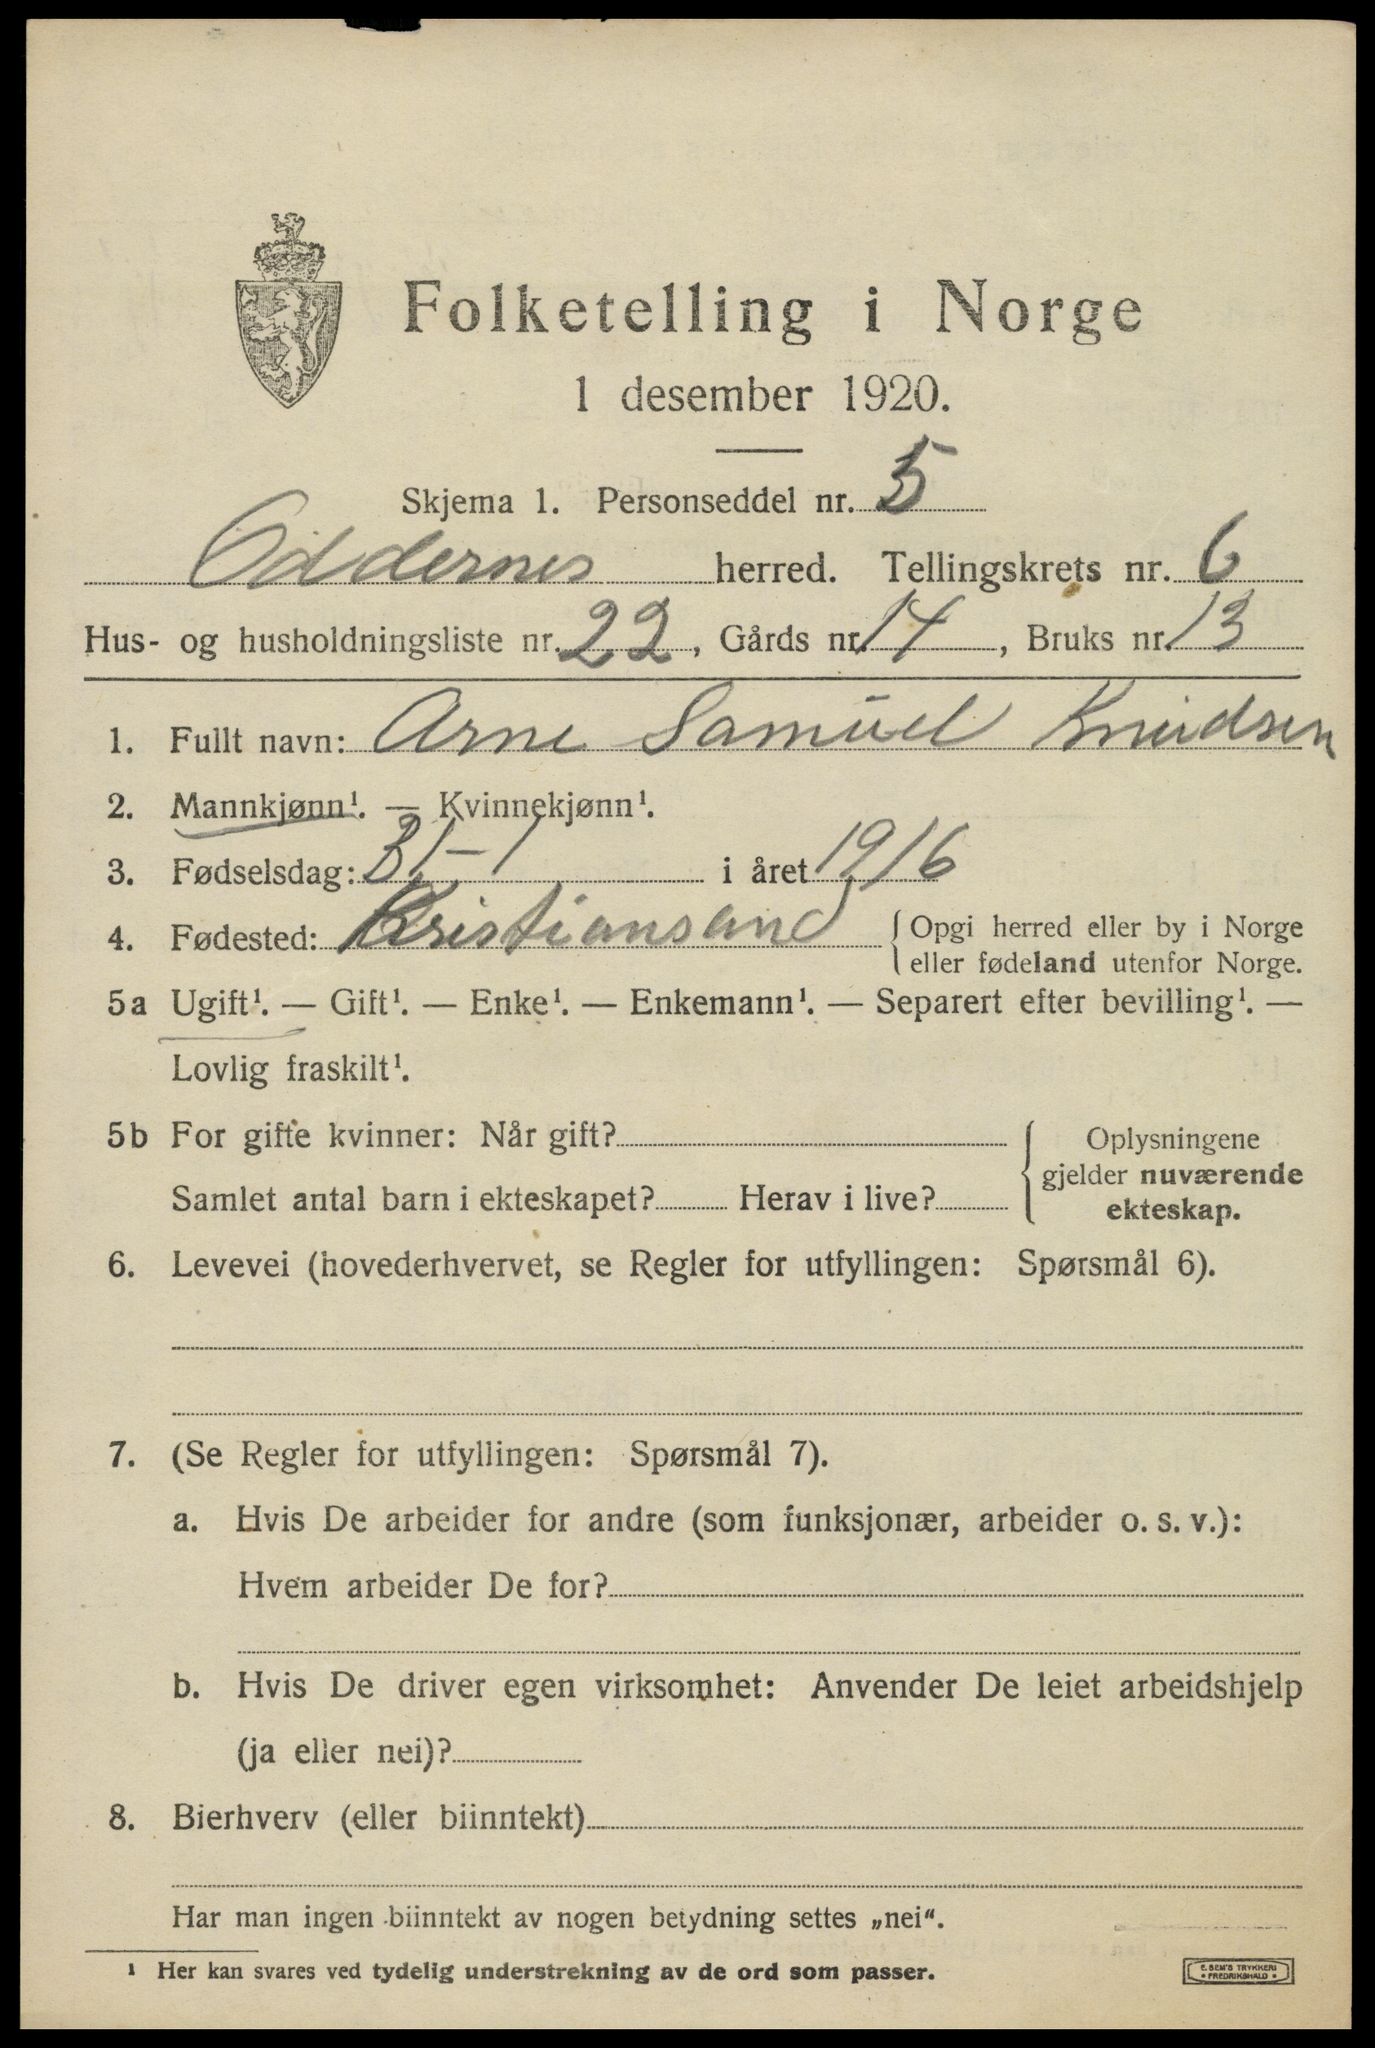 Folketelling i Norge
1 desember 1920.
Skjema 1. Personseddel nr. 5
Oddernes herred. Tellingskrets nr. 6
Hus- og husholdningsliste nr. 22, Gårds nr. 14, Bruks nr. 13
1. Fullt navn: Arne Samuel Knudsen
2. Mannkjønn¹. — Kvinnekjønn¹.
3. Fødselsdag: 31-1 i året 1916
4. Fødested: Kristiansand { Opgi herred eller by i Norge
eller fødeland utenfor Norge.
5a Ugift¹. — Gift¹. — Enke¹. — Enkemann¹. — Separert efter bevilling¹. —
Lovlig fraskilt¹.
5b For gifte kvinner: Når gift?
Samlet antal barn i ekteskapet? Herav i live?
Oplysningene
gjelder nuværende
ekteskap.
6. Levevei (hovederhvervet, se Regler for utfyllingen: Spørsmål 6).
7. (Se Regler for utfyllingen: Spørsmål 7).
a. Hvis De arbeider for andre (som funksjonær, arbeider o. s. v.):
Hvem arbeider De for?
b. Hvis De driver egen virksomhet: Anvender De leiet arbeidshjelp
(ja eller nei)?
8. Bierhverv (eller biinntekt)
Har man ingen biinntekt av nogen betydning settes „nei“.
¹ Her kan svares ved tydelig understrekning av de ord som passer.
E. SEM'S TRYKKERI
• FREDRIKSHALD •